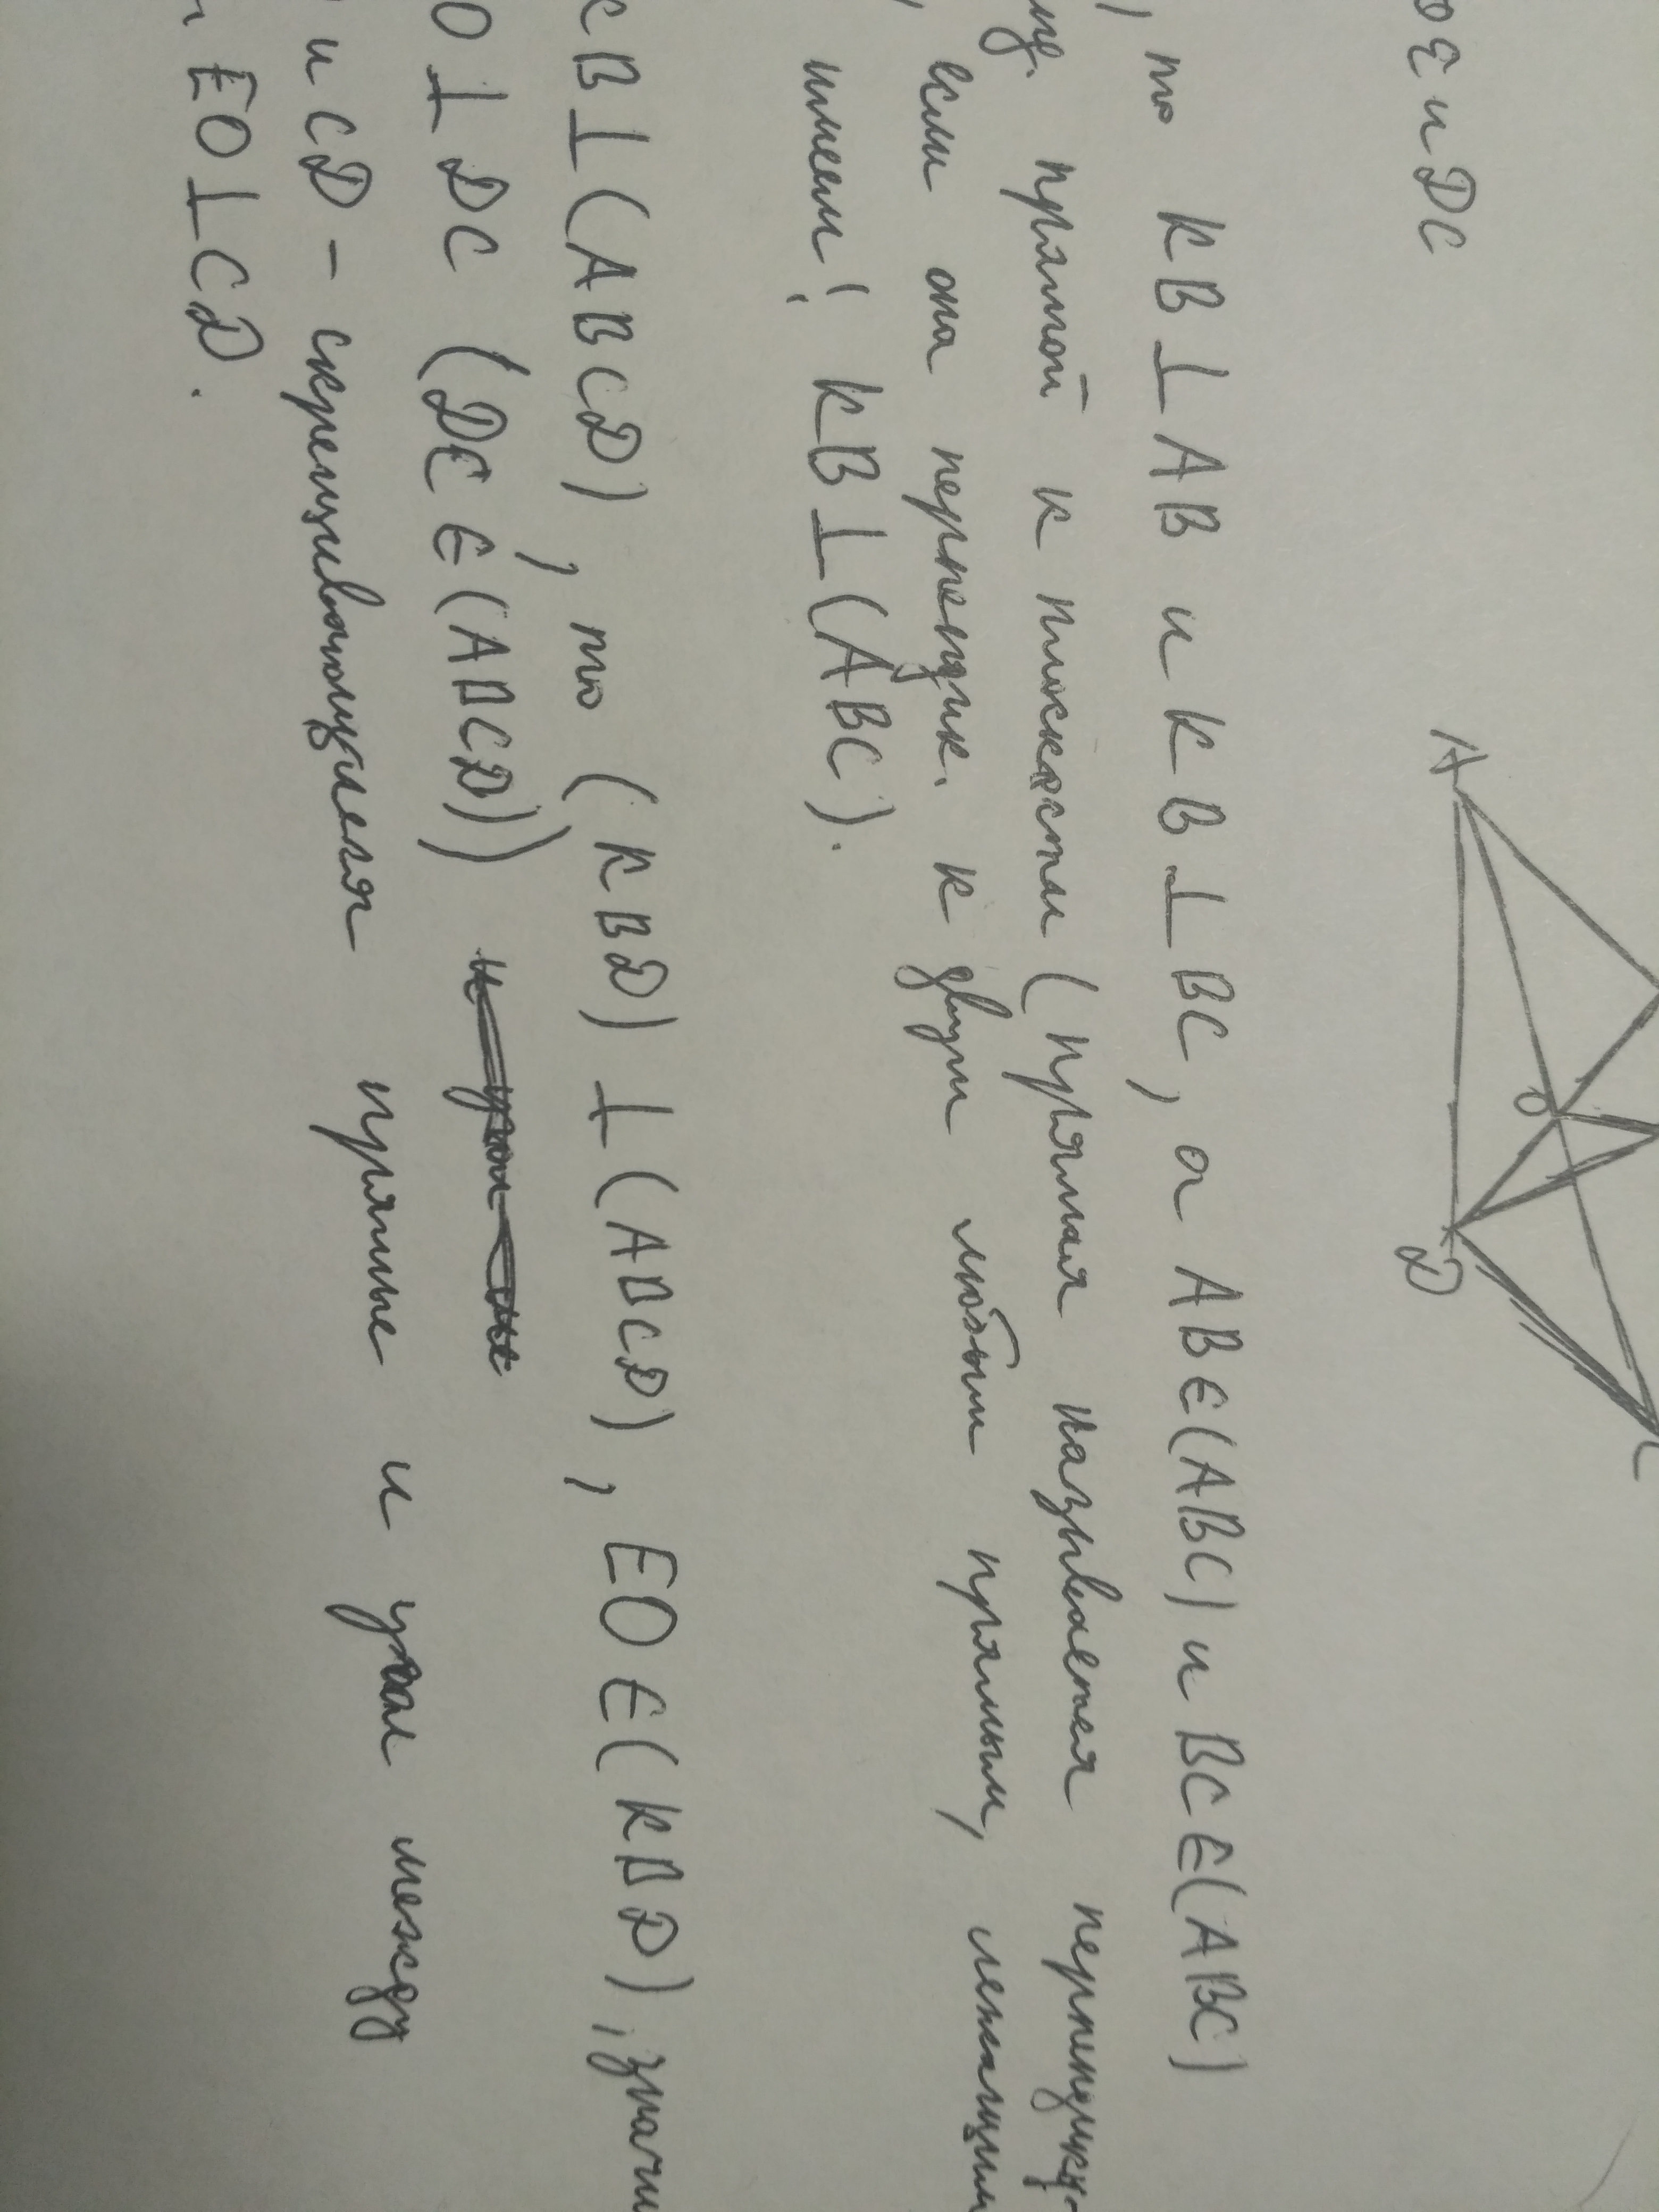 OE и DC
A
O
D
, то KB ⊥ AB и KB ⊥ BC, а AB ∈ (ABC) и BC ∈ (ABC)
прямой к плоскости (прямая называется перпендику-
если она перпендик. к двум любым прямым, лежащим
имеем: KB ⊥ (ABC).
KB ⊥ (ABCD), то (KBD) ⊥ (ABCD), EO ∈ (KBD), значи
O ⊥ DC (DC ∈ (ABCD))
и CD - скрещивающиеся прямые и угол между
EO ⊥ CD.